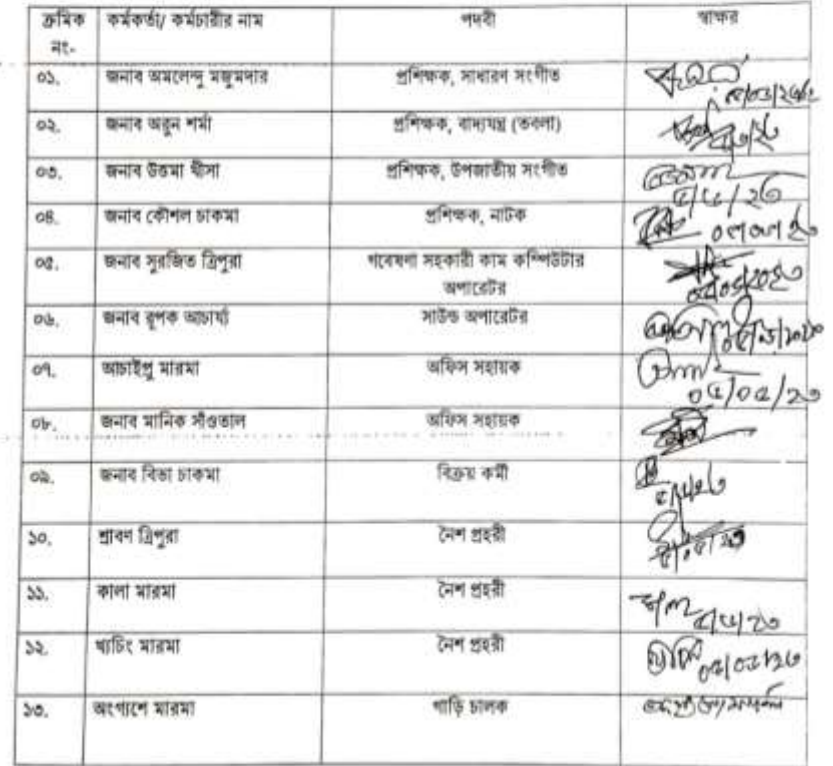 ক্রমিক নং- কর্মকর্তা/ কর্মচারীর নাম পদবী স্বাক্ষর
০১. জনাব অমলেন্দু মজুমদার প্রশিক্ষক, সাধারণ সংগীত
০২. জনাব অরুন শর্মা প্রশিক্ষক, বাদ্যযন্ত্র (তবলা)
০৩. জনাব উত্তমা খীসা প্রশিক্ষক, উপজাতীয় সংগীত
০৪. জনাব কৌশল চাকমা প্রশিক্ষক, নাটক
০৫. জনাব সুরজিত ত্রিপুরা গবেষণা সহকারী কাম কম্পিউটার
অপারেটর
০৬. জনাব রূপক আচার্য্য সাউন্ড অপারেটর
০৭. আচাইপ্রু মারমা অফিস সহায়ক
০৫/০৫/২৩
০৮. জনাব মানিক সাঁওতাল অফিস সহায়ক
০৯. জনাব বিভা চাকমা বিক্রয় কর্মী
১০. শ্রাবণ ত্রিপুরা নৈশ প্রহরী
১১. কালা মারমা নৈশ প্রহরী
১২. থ্যচিং মারমা নৈশ প্রহরী
১৩. অংগ্যশে মারমা গাড়ি চালক